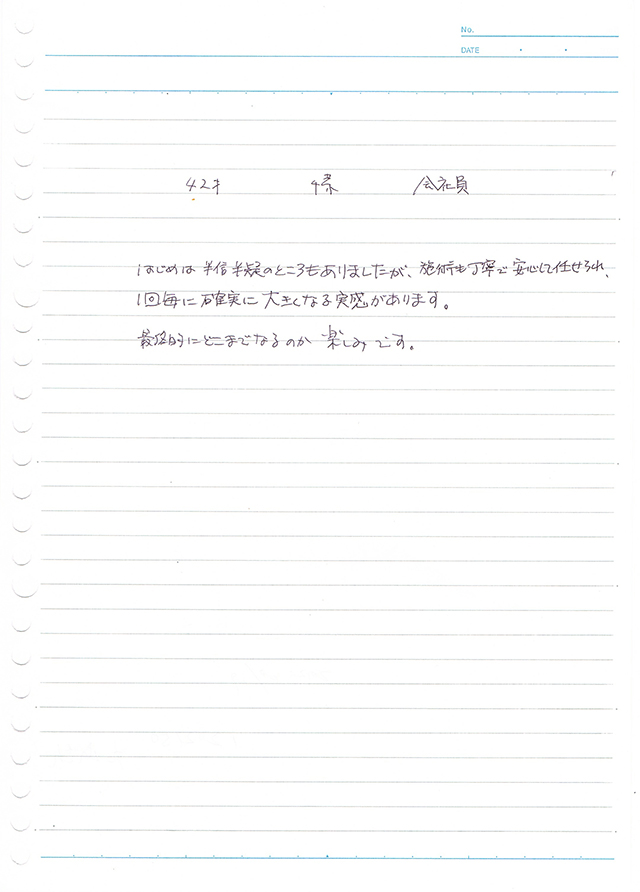 No.
DATE
42才 様 会社員
はじめは半信半疑のところもありましたが、施術も丁寧で安心して任せられ、
1回毎に確実に大きくなる実感があります。
最終的にどこまでなるのか楽しみです。